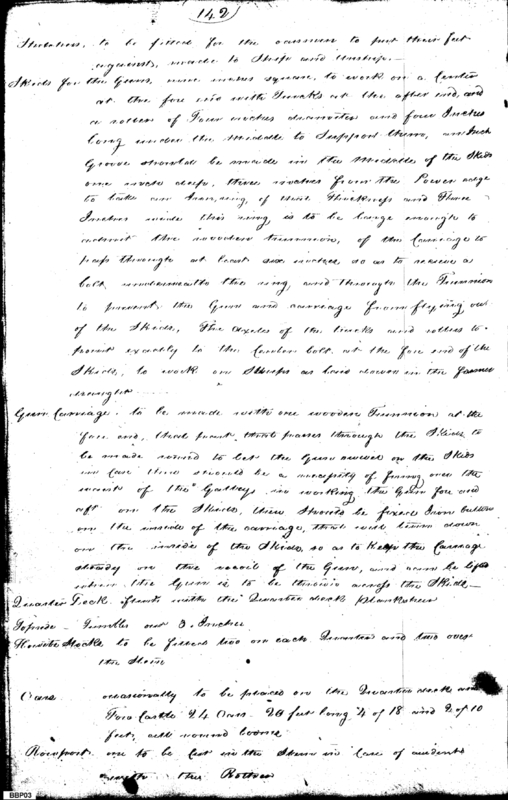 142
Stretchers, to be fitted for the oarsmen to put their feet
against, made to Ship and Unship.—
Skids for the Guns, nine inches square, to work on a Center
at the fore end with Trucks at the after end, and
a rollers of Four inches diameter and four Inches
long under the Middle to Support them, an Inch
Groove should be made in the Middle of the Skids
one inch deep, three inches from the Lower edge
to take an Iron ring, of Thickness and Three
Inches wide this ring is to be large enough to
admit the wooden trunnion, of the Carriage to
pass through at least six inches, so as to receive a
bolt, underneath the ring and through the Trunnion
to prevent the Gun and carriage from flying out
of the Skids, The Axeles of the trucks and rollers to
point exactly to the Center bolt, at the fore end of the
Skids, to work on Sweeps as laid down in the
draught
Gun Carriage. to be made with one wooden Trunnion at the
fore end, that part, that passes through the Skids to
be made round to let the Gun swivel on the Skids
in case there should be a necessity of firing over the
of the Galleys, in working the Gun fore and
aft on the Skids, there Should be fixed Iron
on the inside of the carriage, that will turn down
on the inside of the Skids, so as to Keep the Carriage
steady on the recoil of the Gun, and can be lifted
when the Gun is to be thrown across the Skids—
Quarter Deck. flush with the Quarter deck Planksheer
Topside - out 3. Inches
Stocks to be fitted two on each Quarter and two over
the Stern
Oars occasionally to be placed on the Quarter deck and
Fore Castle 24 Oars. 20 feet long 4 of 18 and 2 of 10
feet, all
one to be Cut in the Stern in Case of accidents
the
BBP03